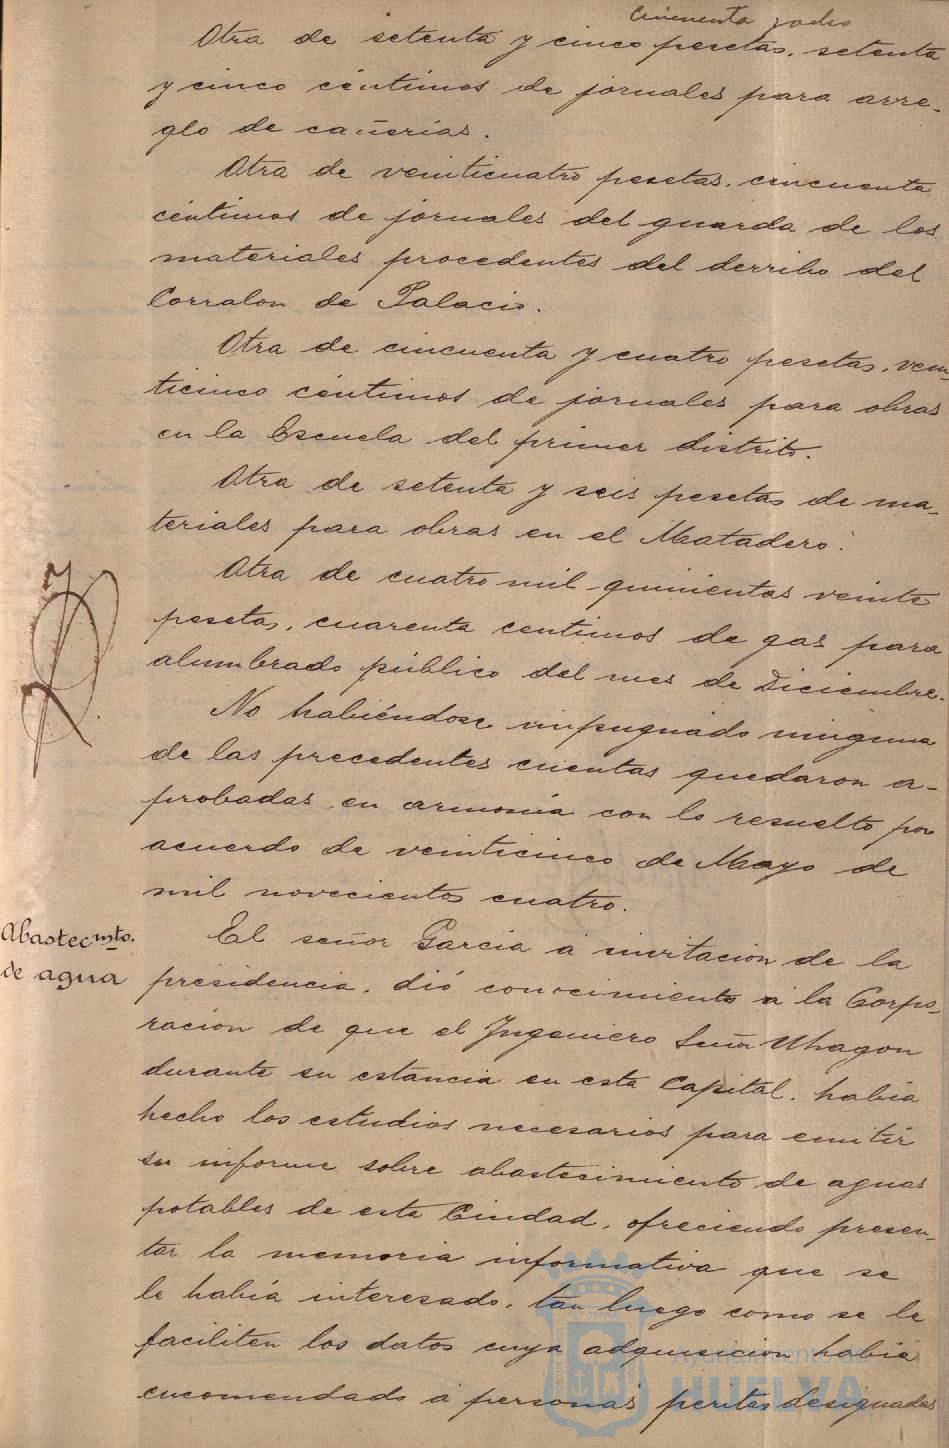 cincuenta y ocho
Otra de setenta y cinco pesetas, setenta
y cinco céntimos de jornales para arre-
glo de cañerías.
Otra de veinticuatro pesetas, cincuenta
céntimos de jornales del guarda de los
materiales procedentes del derribo del
Corralon de Palacio.
Otra de cincuenta y cuatro pesetas, vein
ticinco céntimos de jornales para obras
en la Escuela del primer distrito.
Otra de setenta y seis pesetas de ma-
teriales para obras en el Matadero.
Otra de cuatro mil quinientas veinte
pesetas, cuarenta centimos de gas para
alumbrado público del mes de Diciembre.
No habiéndose impugnado ninguna
de las precedentes cuentas quedaron a-
probadas en armonía con lo resuelto por
acuerdo de veinticinco de Mayo de
mil novecientos cuatro.
Abastecmto.
de agua
El señor García a invitacion de la
presidencia, dió conocimiento a la Corpo-
racion de que el Ingeniero Señor Uhagon
durante su estancia en esta Capital, había
hecho los estudios necesarios para emitir
su informe sobre abastecimiento de aguas
potables de esta Ciudad, ofreciendo presen-
tar la memoria informativa que se
le había interesado, tan luego como se le
faciliten los datos cuya adquisicion había
encomendado a personas peritas designadas
Ayuntamiento de
HUELVA